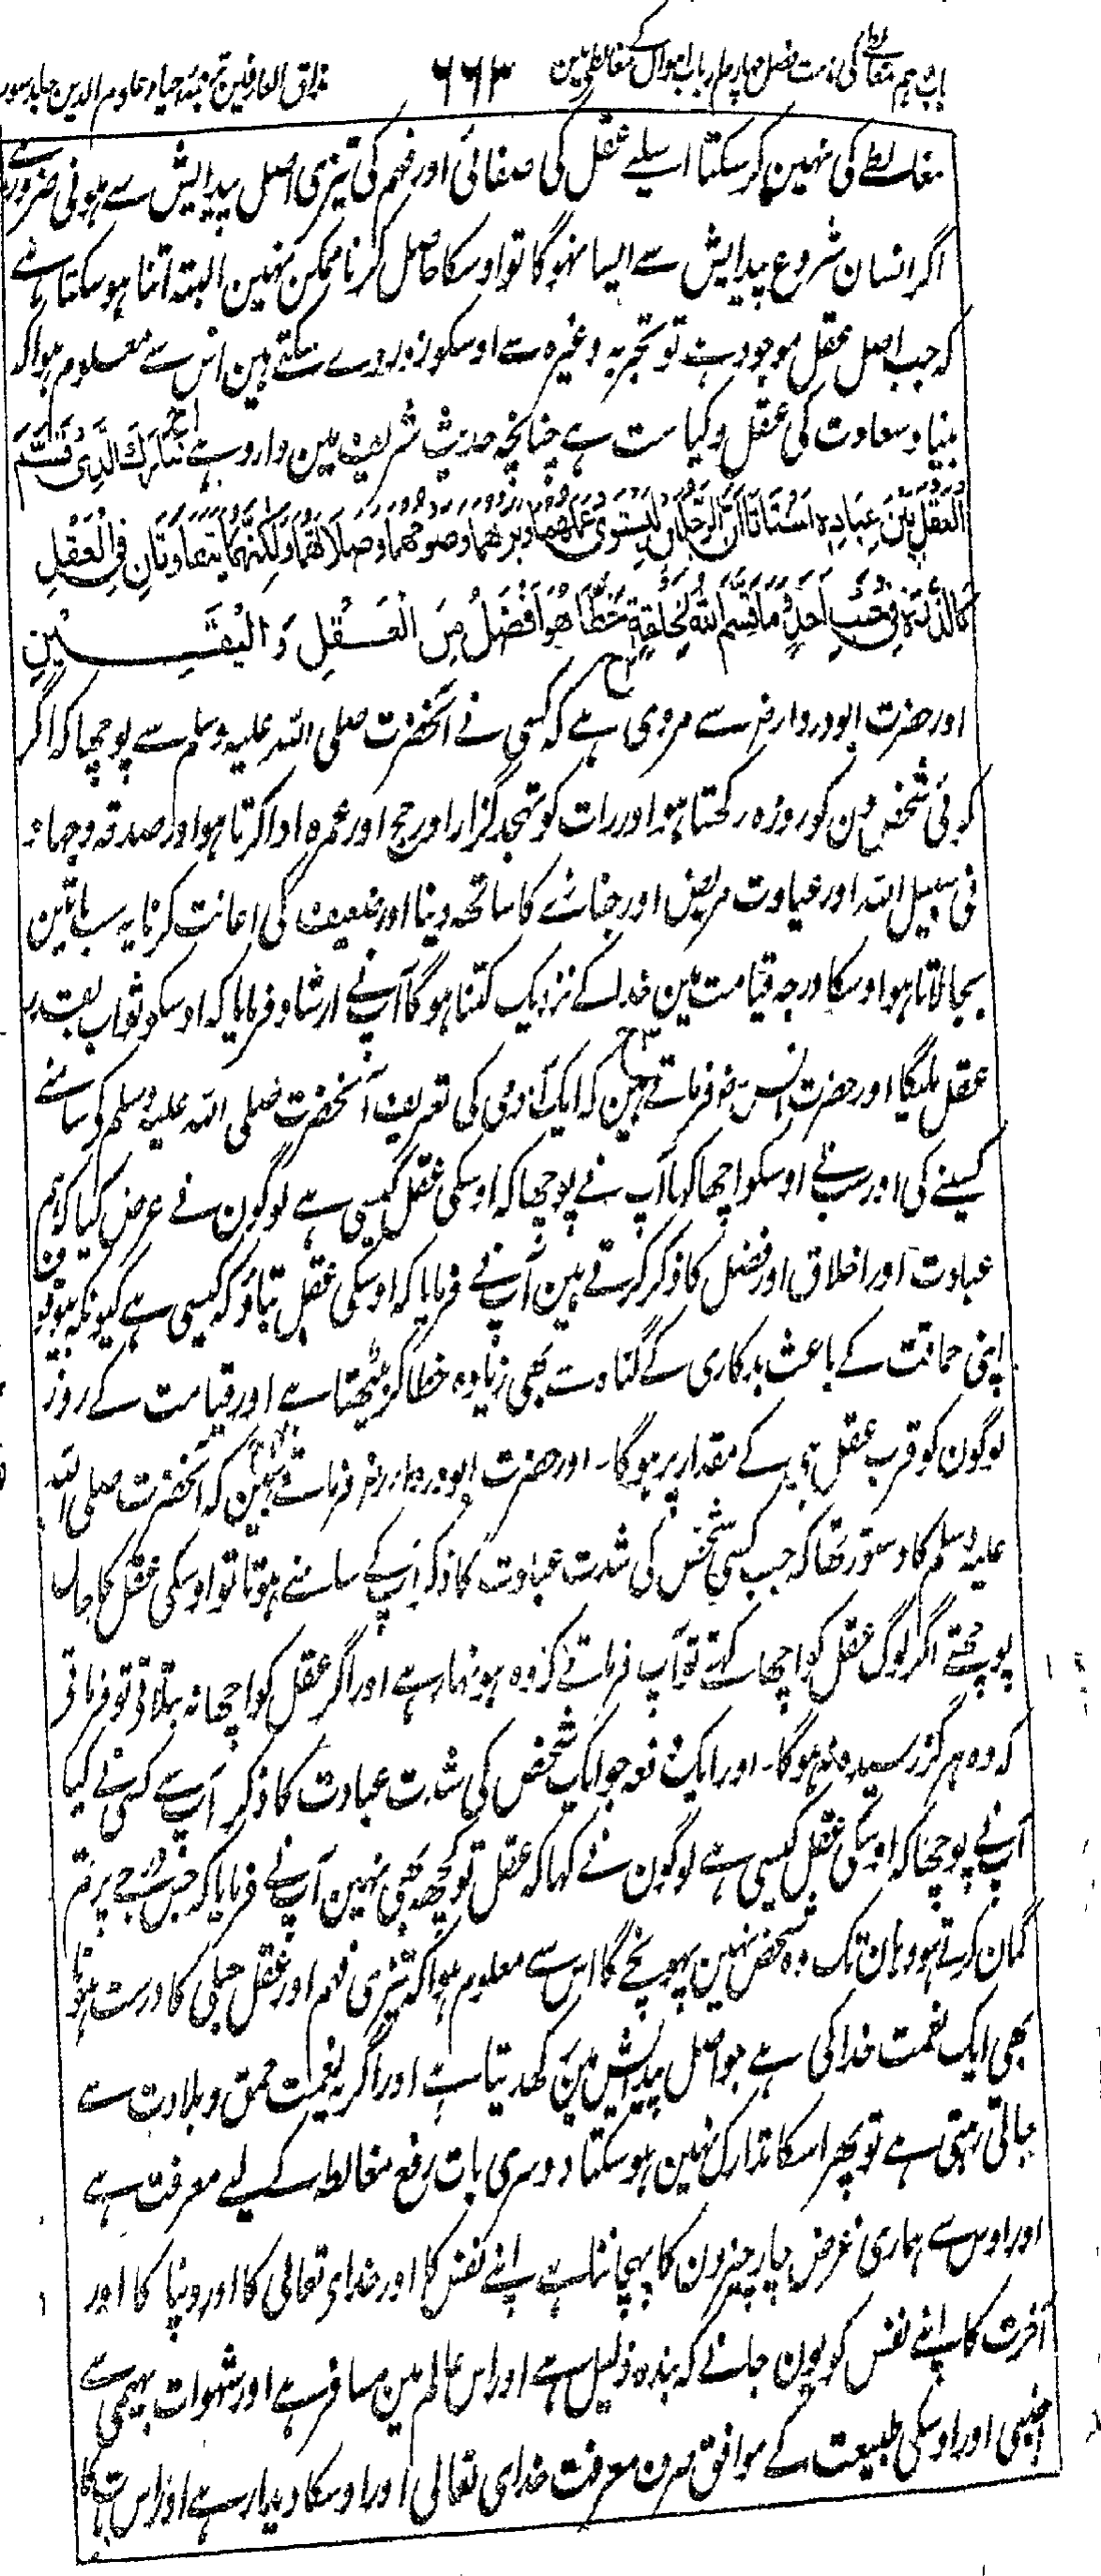 باب دہم مغالطے کی مذمت فصل چہارم ارباب اموال کے مغالطے مین ۶۶۳ مذاق العارفین ترجمہ احیاء علوم الدین جلد سوم
مغالطے کی نہین کر سکتا اسیلیے عقل کی صفائی اور فہم کی تیزی اصل پیدایش سے ہونی ضرور ہے
اگر انسان شروع پیدایش سے ایسا نہوگا تو اوسکا حاصل کرنا ممکن نہین البتہ اتنا ہو سکتا ہے
کہ جب اصل عقل موجود ہے تو تجربہ وغیرہ سے اوسکو زور دے سکتے ہین اس سے معلوم ہوا کہ
بنیاد سعادت کی عقل و کیاست ہے چنانچہ حدیث شریف مین وارد ہے تَبَارَكَ الَّذِی قَسَّمَ
الْعَقْلَ بَيْنَ عِبَادِهٖ اَشْتَاتًا اِنَّ الرَّجُلَيْنِ لَيَسْتَوِیْ عَمَلُهُمَا وَبِرُّهُمَا وَصَوْمُهُمَا وَصَلَاتُهُمَا وَلٰكِنَّهُمَا يَتَفَاوَتَانِ فِی الْعَقْلِ
كَالذَّرَّةِ فِیْ جَنْبِ اُحُدٍ وَمَا قَسَمَ اللهُ لِخَلْقِهٖ حَظًّا هُوَ اَفْضَلُ مِنَ الْعَقْلِ وَالْيَقِيْنِ
اور حضرت ابو درداء رضہ سے مروی ہے کہ کسی نے آنحضرت صلی اللہ علیہ وسلم سے پوچھا کہ اگر
کوئی شخص دن کو روزہ رکھتا ہو اور رات کو تہجد گزار اور حج اور عمرہ ادا کرتا ہو اور صدقہ و جہاد
فی سبیل اللہ اور عیادت مریض اور جنازے کا ساتھ دینا اور ضعیف کی اعانت کرنا یہ سب باتین
بجا لاتا ہو اوسکا درجہ قیامت مین خدا کے نزدیک کتنا ہوگا آپنے ارشاد فرمایا کہ اوسکو ثواب بقدر
عقل ملیگا اور حضرت انس رضہ فرماتے ہین کہ ایک آدمی کی تعریف آنحضرت صلی اللہ علیہ وسلم کو سامنے
کسینے کی اور سب نے اوسکو اچھا کہا آپ نے پوچھا کہ اوسکی عقل کیسی ہے لوگون نے عرض کیا کہ ہم
عبادت اور اخلاق اور فضل کا ذکر کرتے ہین آپنے فرمایا کہ اوسکی عقل بتاؤ کہ کیسی ہے کیونکہ بیوقوف
اپنی حماقت کے باعث بدکاری کے گناہ سے بھی زیادہ خطا کر بیٹھتا ہے اور قیامت کے روز
لوگون کو قرب عقل ہی کے مقدار پر ہوگا۔ اور حضرت ابو درداء رضہ فرماتے ہین کہ آنحضرت صلی اللہ
علیہ وسلم کا دستور تھا کہ جب کسی شخص کی شدت عبادت کا ذکر آپ کے سامنے ہوتا تو اوسکی عقل کا حال
پوچھتے اگر لوگ عقل کو اچھا کہتے تو آپ فرماتے کہ وہ ہونہار ہے اور اگر عقل کو اچھا نہ بتلاتے تو فرماتے
کہ وہ ہرگز رسیدہ نہوگا۔ اور ایک دفعہ جو ایک شخص کی شدت عبادت کا ذکر آپ سے کسی نے کیا
آپنے پوچھا کہ اوسکی عقل کیسی ہے لوگون نے کہا کہ عقل تو کچھ بھی نہین آپنے فرمایا کہ جس درجے پر تم
گمان کرتے ہو وہان تک وہ شخص نہین پہونچے گا اس سے معلوم ہوا کہ تیزی فہم اور عقل جبلی کا درست ہونا
بھی ایک نعمت خدا کی ہے جو اصل پیدایش مین رکھدیتا ہے اور اگر یہ نعمت حمق و بلادت سے
جاتی رہتی ہے تو پھر اسکا تدارک نہین ہو سکتا دوسری بات رفع مغالطہ کے لیے معرفت ہے
اور اوس سے ہماری غرض چار چیزون کا پہچاننا ہے اپنے نفس کا اور خدای تعالی کا اور دنیا کا اور
آخرت کا اپنے نفس کو یون جانے کہ بندہ ذلیل ہے اور اس عالم مین مسافر ہے اور شہوات بہیمی سے
اجنبی اور اوسکی طبیعت کے موافق صرف معرفت خدای تعالی اور اوسکا دیدار ہے اور اس بات کا